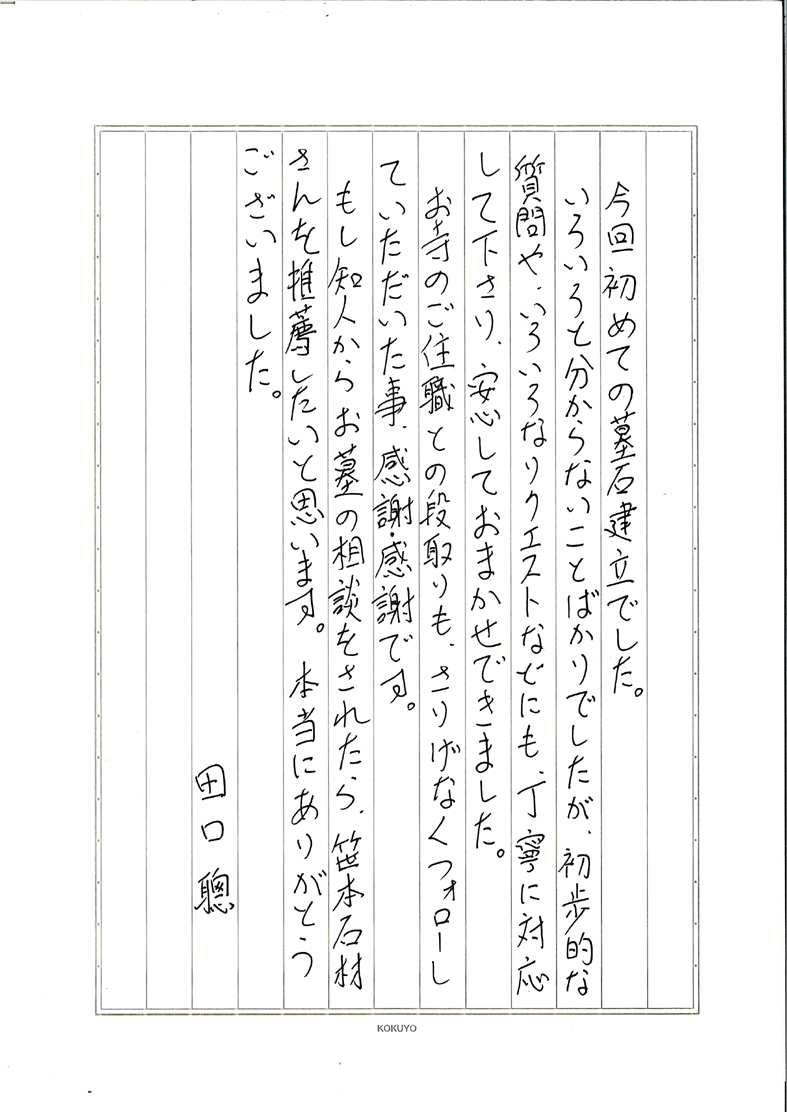 今回初めての墓石建立でした。
いろいろと分からないことばかりでしたが、初歩的な
質問や、いろいろなリクエストなどにも、丁寧に対応
して下さり、安心しておまかせできました。
お寺のご住職との段取りも、さりげなくフォローし
ていただいた事、感謝・感謝です。
もし知人からお墓の相談をされたら、笹本石材
さんを推薦したいと思います。本当にありがとう
ございました。
田口聰
KOKUYO